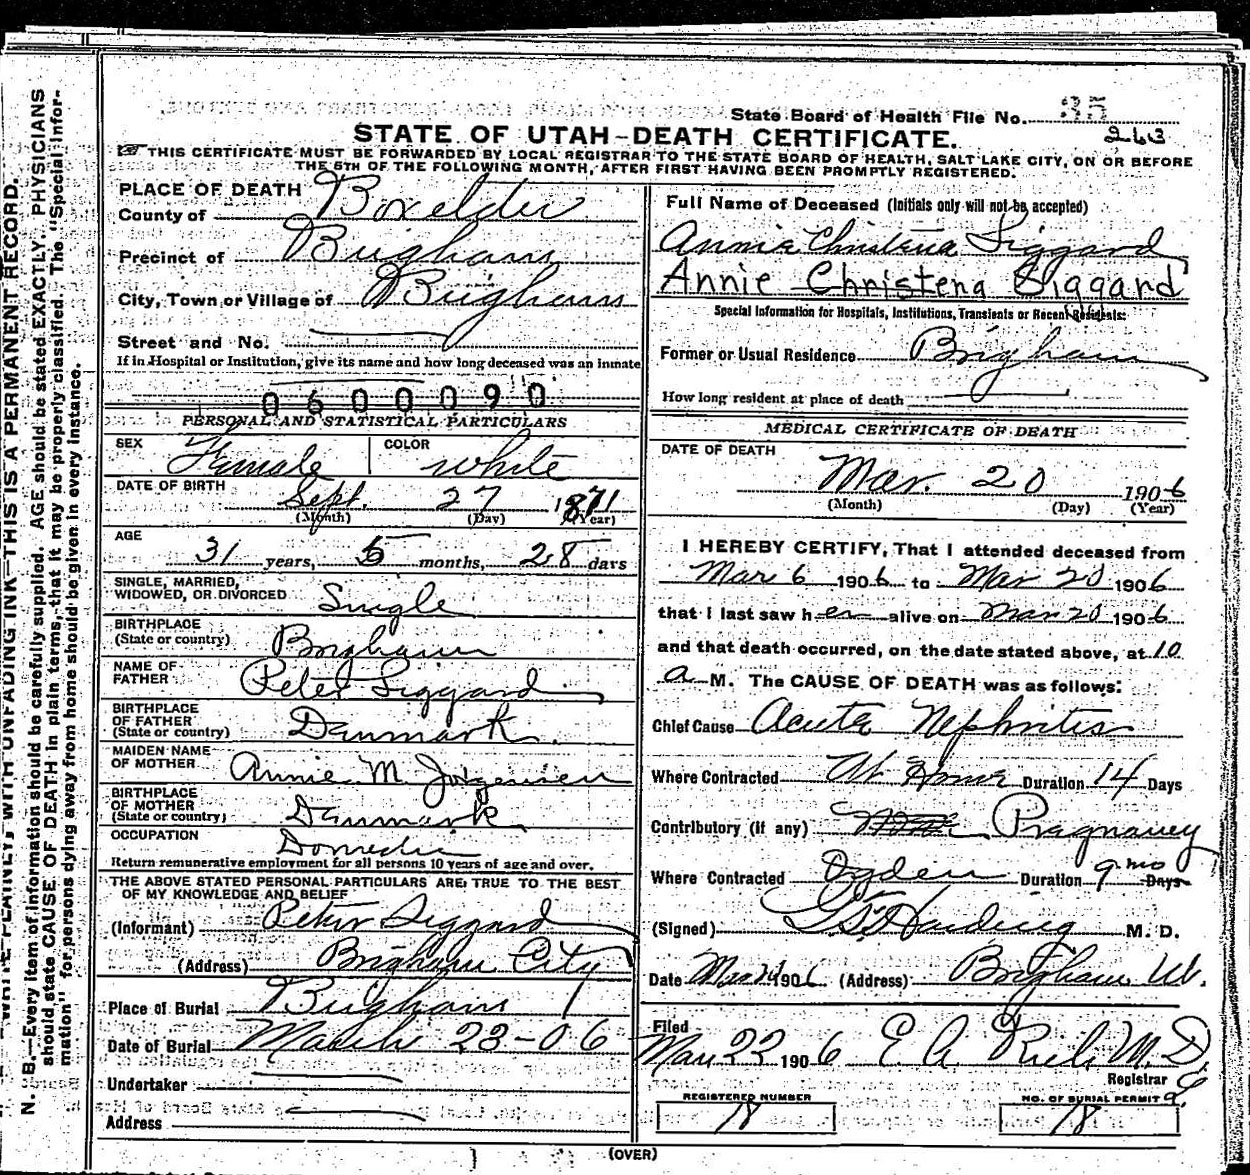 State Board of Health File No. 35
263
STATE OF UTAH-DEATH CERTIFICATE.
THIS CERTIFICATE MUST BE FORWARDED BY LOCAL REGISTRAR TO THE STATE BOARD OF HEALTH, SALT LAKE CITY, ON OR BEFORE
THE 5TH OF THE FOLLOWING MONTH, AFTER FIRST HAVING BEEN PROMPTLY REGISTERED.
PLACE OF DEATH
County of Boxelder
Precinct of Brigham
City, Town or Village of Brigham
Street and No.
If in Hospital or Institution, give its name and how long deceased was an inmate
0600090
PERSONAL AND STATISTICAL PARTICULARS
SEX Female COLOR white
DATE OF BIRTH Sept. 27 1871
(Month) (Day) (Year)
AGE 31 years, 5 months, 28 days
SINGLE, MARRIED,
WIDOWED, OR DIVORCED Single
BIRTHPLACE
(State or country) Brigham
NAME OF
FATHER Peter Siggard
BIRTHPLACE
OF FATHER
(State or country) Denmark
MAIDEN NAME
OF MOTHER Annie M Jorgensen
BIRTHPLACE
OF MOTHER
(State or country) Denmark
OCCUPATION Domestic
Return remunerative employment for all persons 10 years of age and over.
THE ABOVE STATED PERSONAL PARTICULARS ARE TRUE TO THE BEST
OF MY KNOWLEDGE AND BELIEF
(Informant) Peter Siggard
(Address) Brigham City
Place of Burial Brigham
Date of Burial March 23-06
Undertaker
Address
Full Name of Deceased (Initials only will not be accepted)
Annie Christena Siggard
Annie Christena Siggard
Special Information for Hospitals, Institutions, Transients or Recent Residents:
Former or Usual Residence Brigham
How long resident at place of death
MEDICAL CERTIFICATE OF DEATH
DATE OF DEATH
Mar. 20 1906
(Month) (Day) (Year)
I HEREBY CERTIFY, That I attended deceased from
Mar 6 1906 to Mar 20 1906
that I last saw her alive on Mar 20 1906
and that death occurred, on the date stated above, at 10
a M. The CAUSE OF DEATH was as follows:
Chief Cause Acute Nephritis
Where Contracted At Home Duration 14 Days
Contributory (if any) Pregnancy
Where Contracted Ogden Duration 9 mo Days
(Signed) Harding M. D.
Date Mar 1906 (Address) Brigham Ut.
Filed
Mar 22 1906 E A Rich M.D.
Registrar
REGISTERED NUMBER
18
NO. OF BURIAL PERMIT
18
(OVER)
N. B.—Every item of information should be carefully supplied. AGE should be stated EXACTLY. PHYSICIANS
should state CAUSE OF DEATH in plain terms, that it may be properly classified. The "Special Infor-
mation" for persons dying away from home should be given in every instance.
WITH UNFADING INK—THIS IS A PERMANENT RECORD.